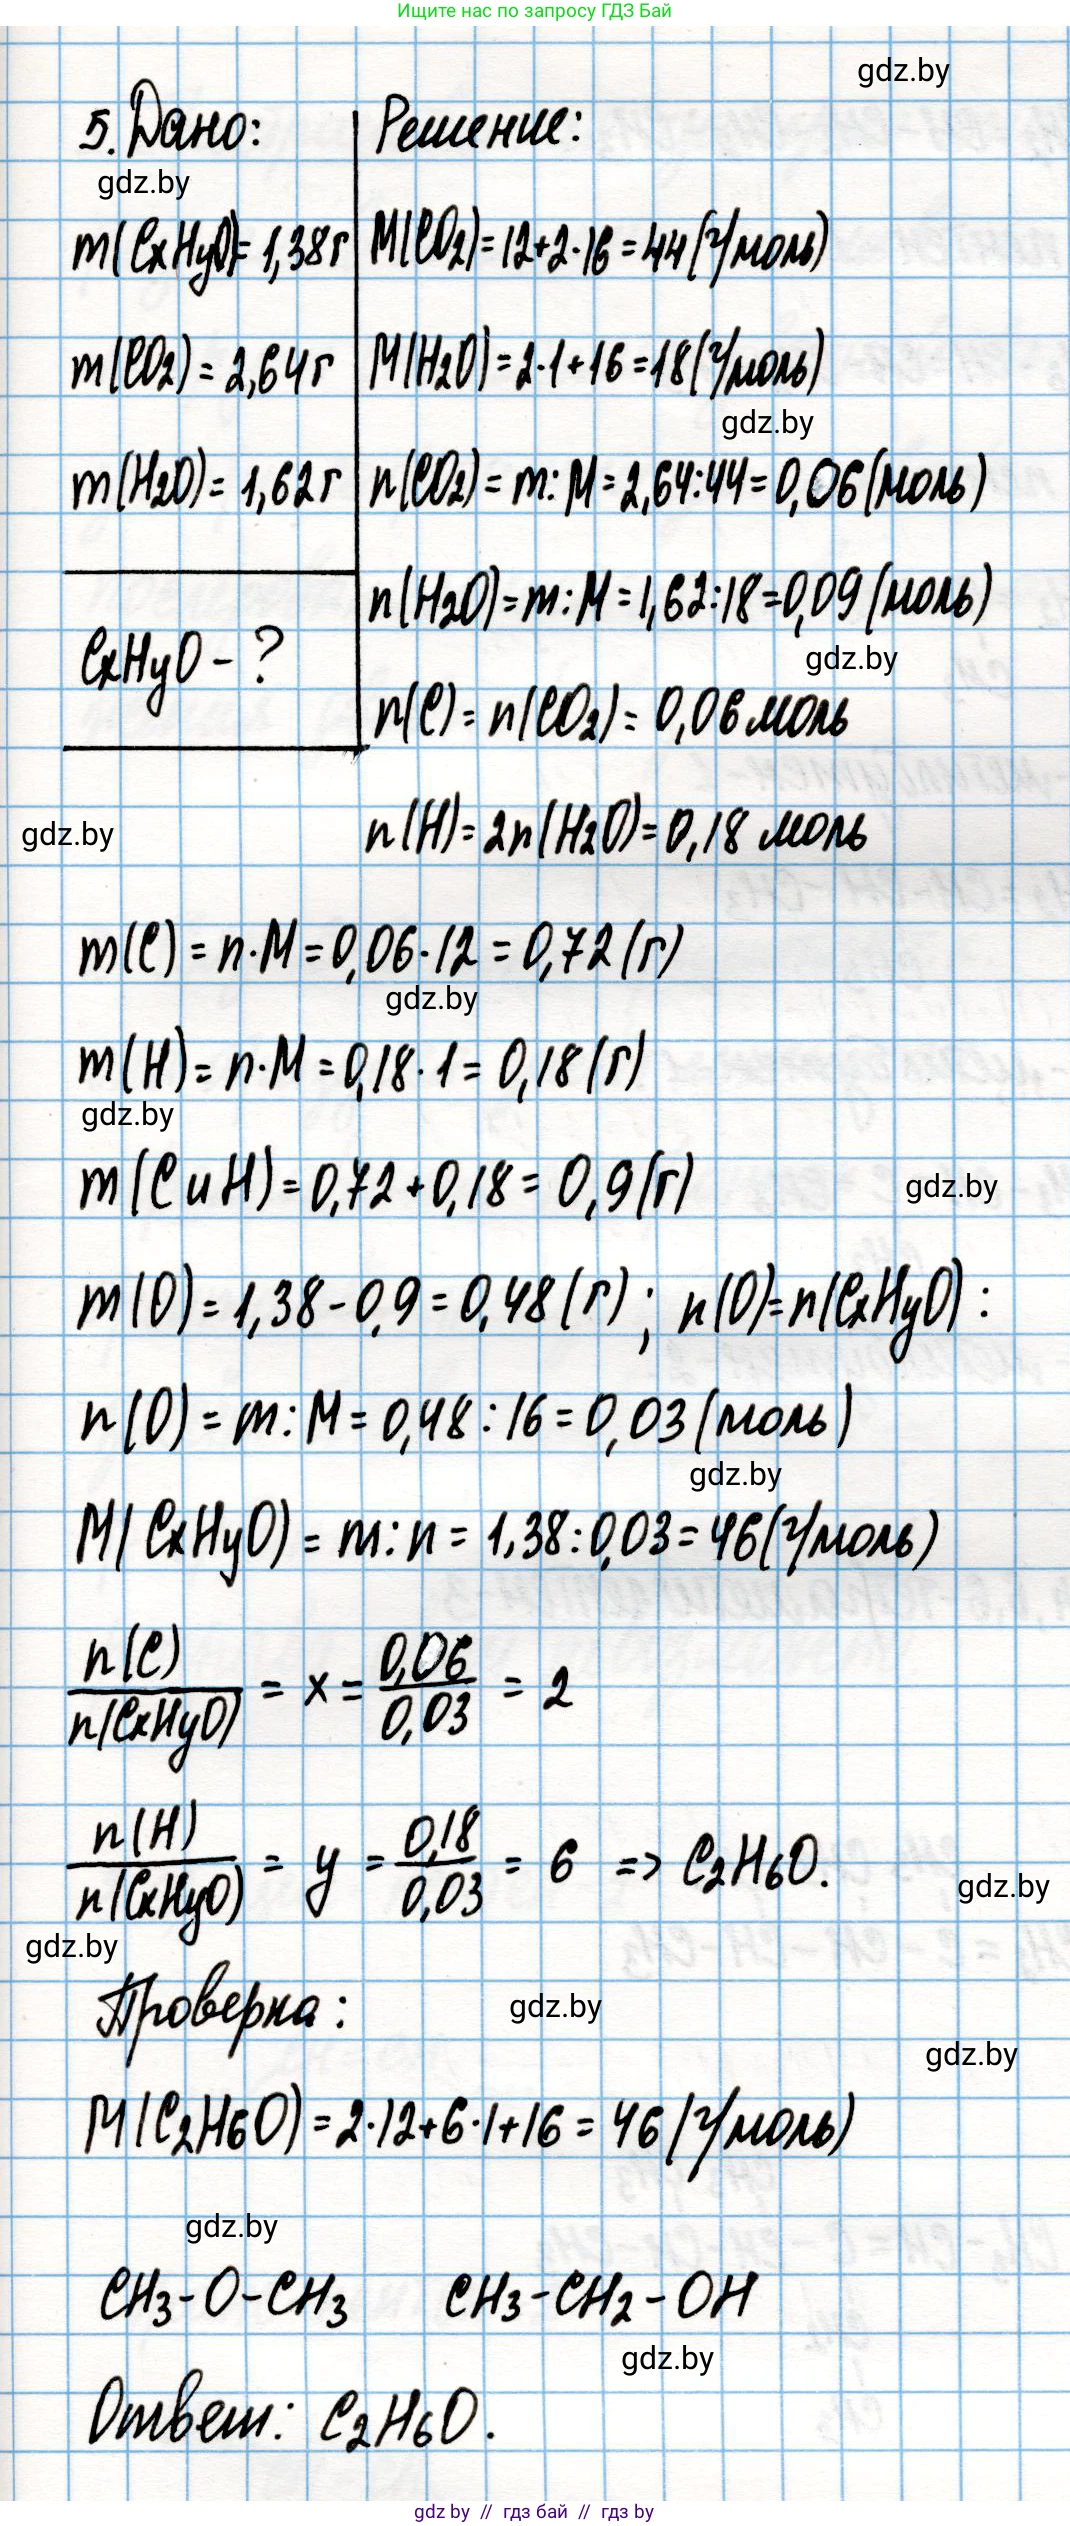 Ищите нас по запросу ГДЗ Бай
gdz.by
5. Дано:
Решение:
gdz.by
m(CxHyO)=1,38г
M(CO2)=12+2·16=44(г/моль)
m(CO2)=2,64г
M(H2O)=2·1+16=18(г/моль)
gdz.by
m(H2O)=1,62г
n(CO2)=m:M=2,64:44=0,06(моль)
n(H2O)=m:M=1,62:18=0,09(моль)
CxHyO-?
gdz.by
n(C)=n(CO2)=0,06моль
gdz.by
n(H)=2n(H2O)=0,18 моль
m(C)=n·M=0,06·12=0,72(г)
gdz.by
m(H)=n·M=0,18·1=0,18(г)
gdz.by
m(C и H)=0,72+0,18=0,9(г)
gdz.by
m(O)=1,38-0,9=0,48(г); n(O)=n(CxHyO):
n(O)=m:M=0,48:16=0,03(моль)
gdz.by
M(CxHyO)=m:n=1,38:0,03=46(г/моль)
n(C)/n(CxHyO)=x=0,06/0,03=2
n(H)/n(CxHyO)=y=0,18/0,03=6 => C2H6O.
gdz.by
gdz.by
Проверка:
gdz.by
gdz.by
M(C2H6O)=2·12+6·1+16=46(г/моль)
gdz.by
CH3-O-CH3 CH3-CH2-OH
gdz.by
Ответ: C2H6O.
gdz by // гдз бай // gdz by